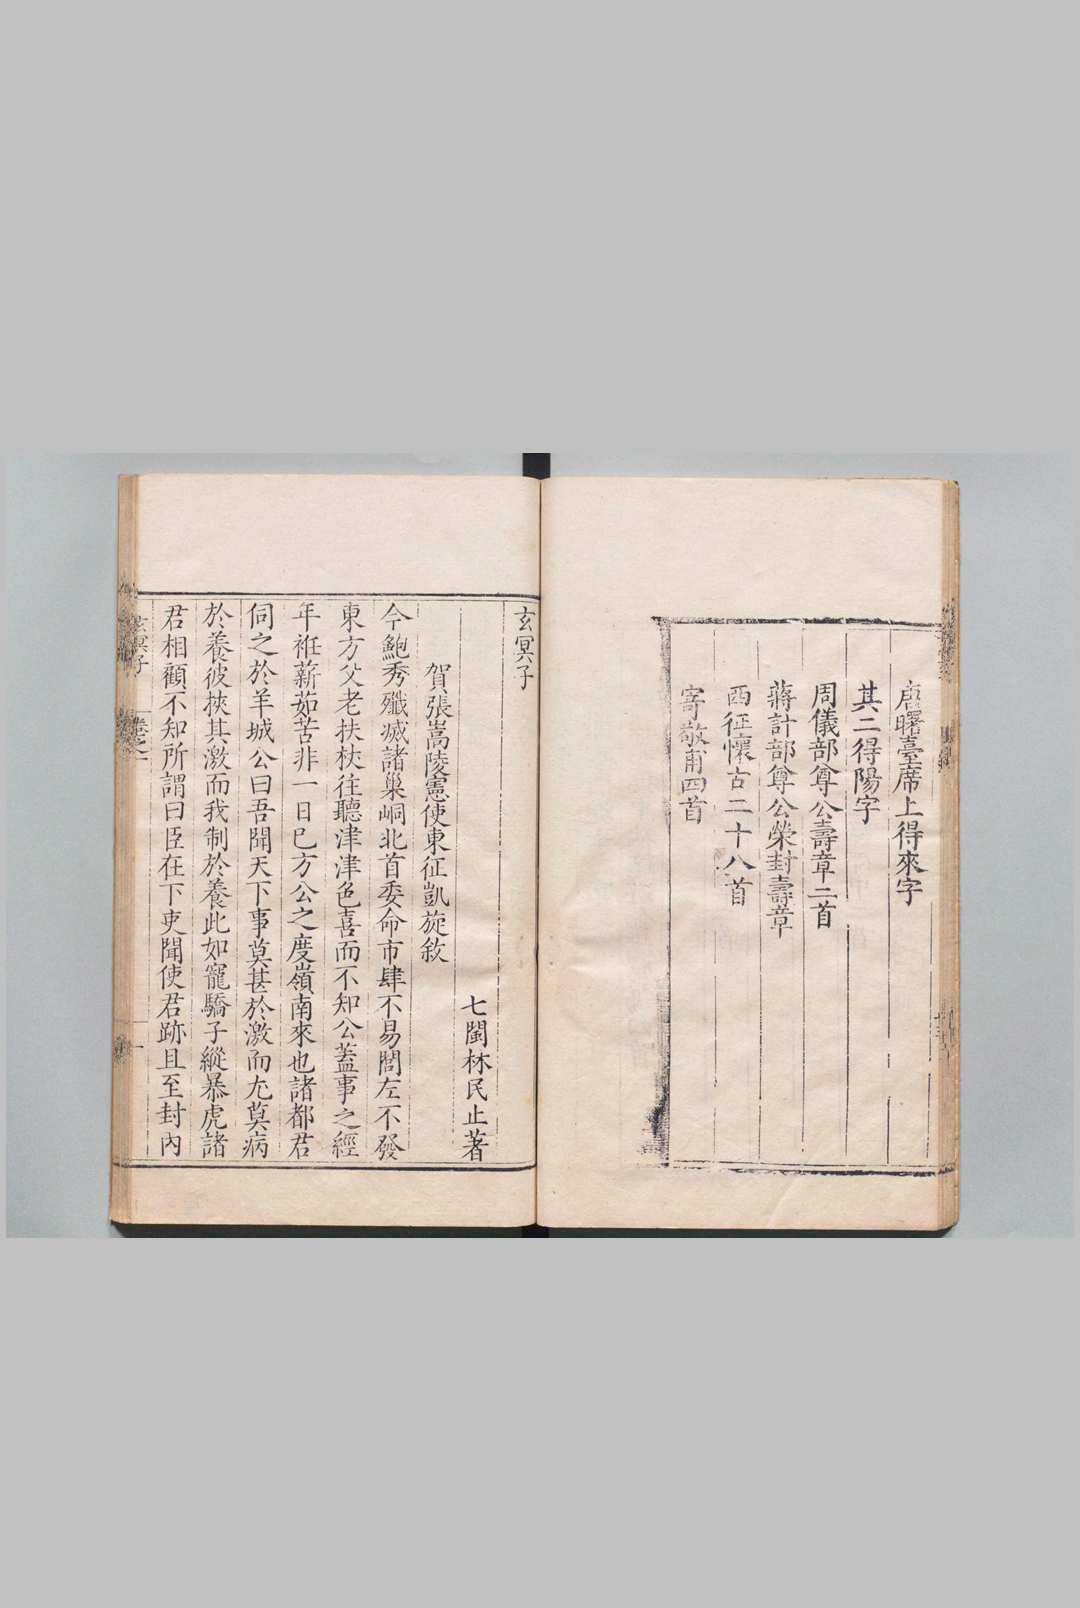 唐曙臺席上得來字
其二得陽字
周儀部尊公壽章二首
蔣計部尊公榮封壽章
西征懷古二十八首
寄敬甫四首
玄冥子
七閩林民止著
賀張嵩陵憲使東征凱旋敘
今鮑秀殲滅諸巢峒北首委命市肆不易閭左不發
東方父老扶杖往聽津津色喜而不知公蓋事之經
年袵薪茹苦非一日巳方公之度嶺南來也諸都君
伺之於羊城公曰吾聞天下事莫甚於激而尤莫病
於養彼挾其激而我制於養此如寵驕子縱暴虎諸
君相顧不知所謂曰臣在下吏聞使君跡且至封內
玄冥子
卷之一
一